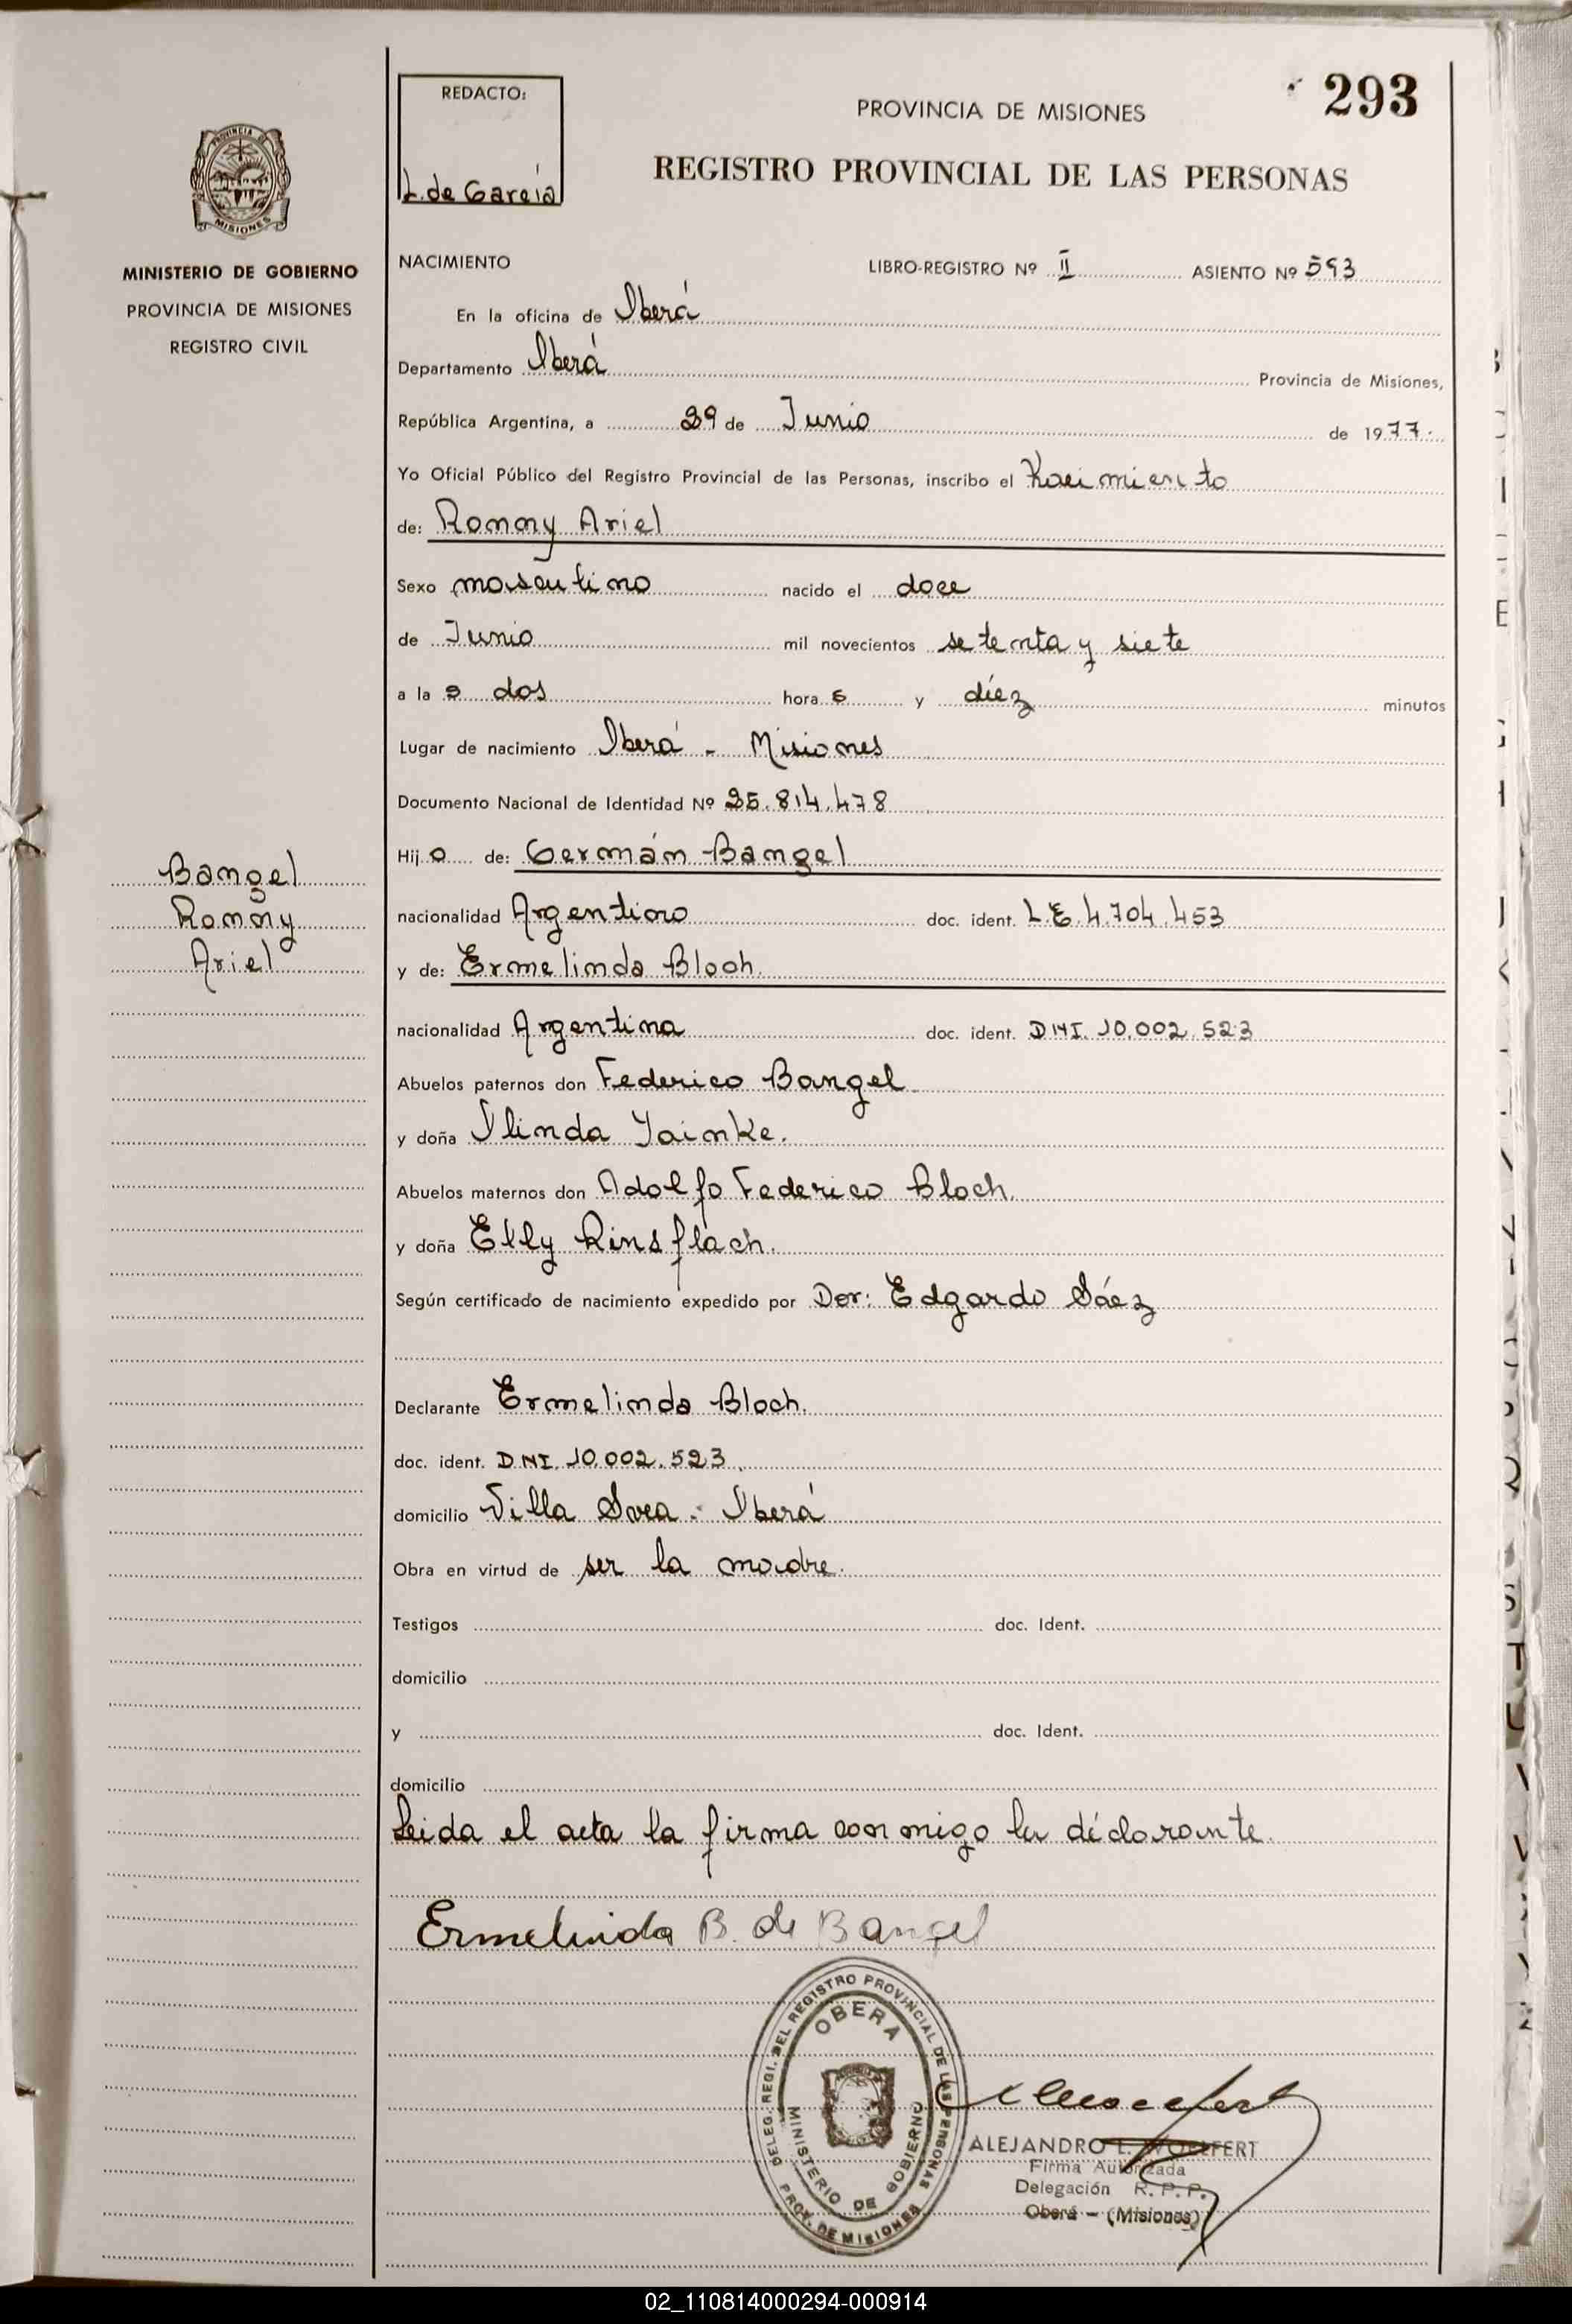 REDACTO:
L. de García
PROVINCIA DE MISIONES
293
REGISTRO PROVINCIAL DE LAS PERSONAS
PROVINCIA DE
MISIONES
MINISTERIO DE GOBIERNO
PROVINCIA DE MISIONES
REGISTRO CIVIL
NACIMIENTO LIBRO-REGISTRO Nº II ASIENTO Nº 593
En la oficina de Oberá
Departamento Oberá Provincia de Misiones,
República Argentina, a 29 de Junio de 1977.
Yo Oficial Público del Registro Provincial de las Personas, inscribo el Nacimiento
de: Rommy Ariel
Sexo masculino nacido el doce
de Junio mil novecientos setenta y siete
a las dos horas y diéz minutos
Lugar de nacimiento Oberá - Misiones
Documento Nacional de Identidad Nº 25.814.478
Hijo de: Germán Bangel
nacionalidad Argentino doc. ident. L.E. 4.704.453
y de: Ermelinda Bloch.
nacionalidad Argentina doc. ident. DNI. 10.002.523
Abuelos paternos don Federico Bangel
y doña Olinda Yainke.
Abuelos maternos don Adolfo Federico Bloch.
y doña Elly Rinsflach.
Según certificado de nacimiento expedido por Dor: Edgardo Sáez
Declarante Ermelinda Bloch.
doc. ident. DNI. 10.002.523.
domicilio Villa Svea - Oberá
Obra en virtud de ser la madre.
Testigos doc. Ident.
domicilio
y doc. Ident.
domicilio
Leida el acta la firma conmigo la declarante.
Bangel
Rommy
Ariel
Ermelinda B. de Bangel
DELEG. REGI. DEL REGISTRO PROVINCIAL DE LAS PERSONAS
OBERA
MINISTERIO DE GOBIERNO
PROV. DE MISIONES
ALEJANDRO L. WOELFERT
Firma Autorizada
Delegación R. P. P.
Oberá - (Misiones)
02_110814000294-000914